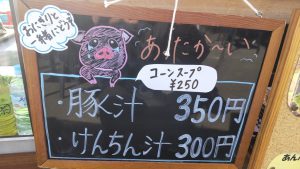 おにぎりと
一緒にどうぞ
あったか〜い
コーンスープ
¥250
・豚汁 350円
・けんちん汁 300円
あん